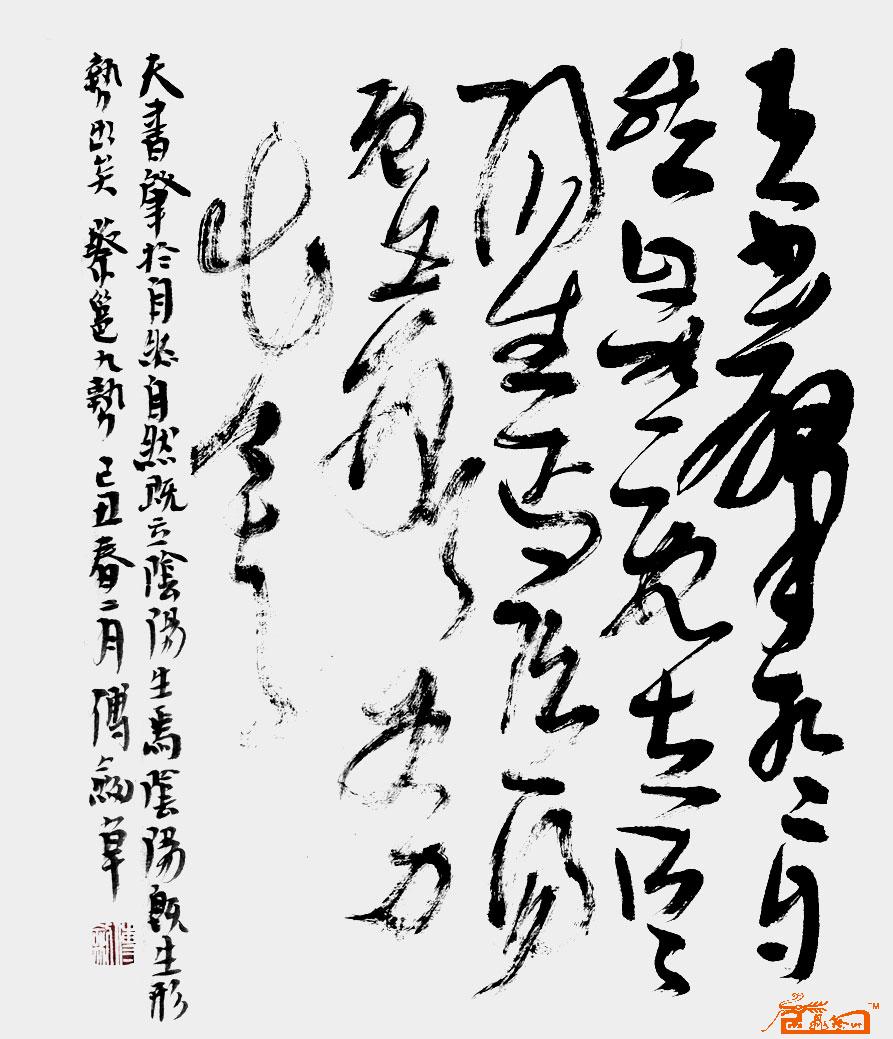 夫書肇於自
然自然既立陰
陽生焉陰陽
既生形勢
出矣
夫書肇於自然自然既立陰陽生焉陰陽既生形
勢出矣 蔡邕九勢 己丑春二月 傅劍草